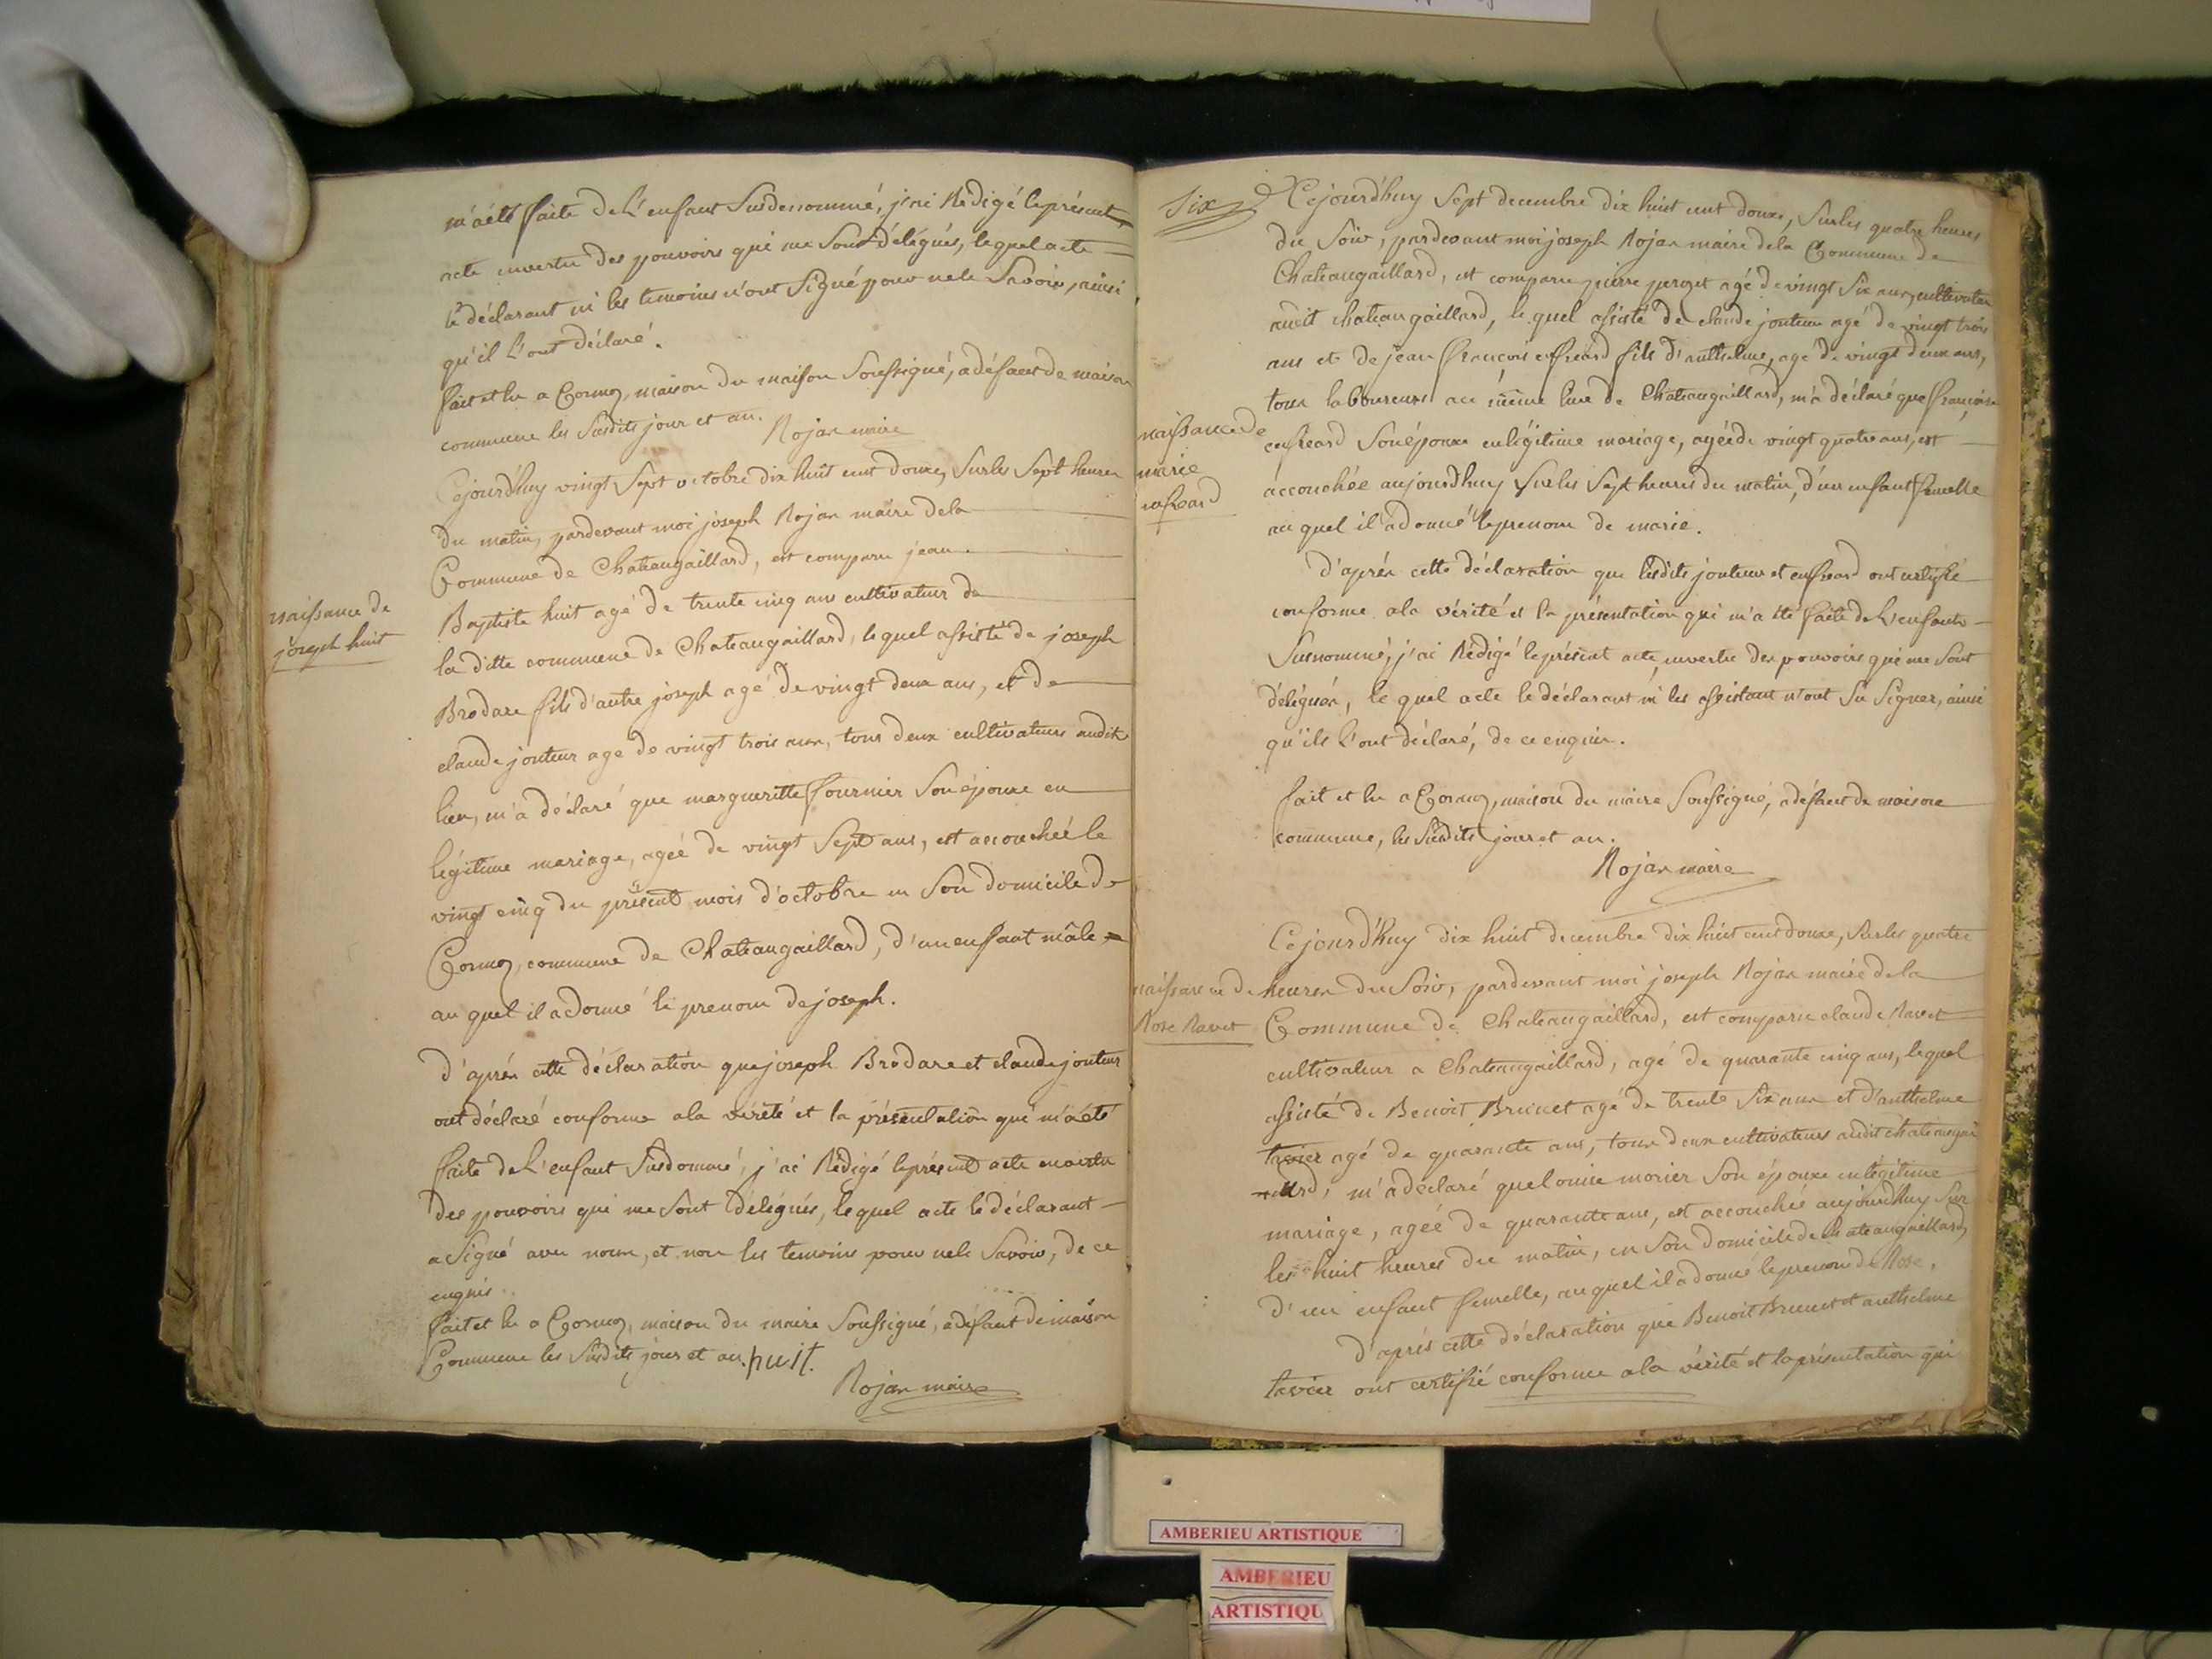 m'a été faite de L'enfant Susdenommé, j'ai Rédigé le présent
acte envertu des pouvoirs qui me Sont délégués, lequel acte
le déclarant ni les temoins n'ont Signé pour ne le Savoir, ainsi
qu'il L'ont déclaré.
fait et lu a Cormoz, maison du maison Soussigné, a défaut de maison
commune les Susdits jour et an. Rojan maire
Cejourd'huy vingt Sept octobre dix huit cent douze, Sur les Sept heures
du matin, pardevant moi joseph Rojan maire dela
Commune de Chateaugaillard, est comparu jean
naissance de
joseph huit
Baptiste huit agé de trente cinq ans cultivateur de
la ditte commune de Chateaugaillard, lequel assisté de joseph
Brodare fils d'autre joseph agé de vingt deux ans, et de
claude jouteur agé de vingt trois ans, tous deux cultivateurs audit
lieu, m'a déclaré que margueritte fournier Son épouse en
légitime mariage, agée de vingt Sept ans, est accouchée le
vingt cinq du présent mois d'octobre en Son domicile de
Cormoz, commune de Chateaugaillard, d'un enfant mâle
au quel il a donné le prenom de joseph.
d'après cette déclaration que joseph Brodare et claude jouteur
ont déclaré conforme a la vérité et la présentation qui m'a été
faite de L'enfant Susdommé, j'ai Rédigé le présent acte envertu
des pouvoirs qui me Sont délégués, lequel acte le déclarant
a Signé avec nous, et non les temoins pour ne le Savoir, de ce
enquis.
fait et lu a Cormoz, maison du maire Soussigné, a défaut de maison
Commune les Susdits jour et an. huit.
Rojan maire
Six
Cejourd'huy Sept decembre dix huit cent douze, Sur les quatre heures
du Soir, pardevant moi joseph Rojan maire dela Commune de
Chateaugaillard, est comparu pierre agé de vingt Six ans, cultivateur
audit chateaugaillard, lequel assisté de claude jouteur agé de vingt trois
ans et de jean françois fils d'anthelme, agé de vingt deux ans,
tous laboureurs au même lieu de Chateaugaillard, m'a déclaré que françoise
naissance de
marie
Son épouse en légitime mariage, agée de vingt quatre ans, est
accouchée aujourd'huy Sur les Sept heures du matin, d'un enfant femelle
au quel il a donné le prenom de marie.
d'après cette déclaration que lesdits jouteur et ont certifié
conforme a la vérité et la présentation qui m'a été faite de L'enfant
Susnommé, j'ai Rédigé le présent acte envertu des pouvoirs qui me Sont
délégués, le quel acte le déclarant ni les assistant n'ont Su Signer, ainsi
qu'ils L'ont déclaré, de ce enquis.
fait et lu a Cormoz, maison du maire Soussigné, a défaut de maison
commune, les Susdits jour et an.
Rojan maire
Cejourd'huy dix huit decembre dix huit cent douze, Sur les quatre
naissance de
Rose Ravet
heures du Soir, pardevant moi joseph Rojan maire de la
Commune de Chateaugaillard, est comparu claude Ravet
cultivateur a Chateaugaillard, agé de quarante cinq ans, lequel
assisté de Benoit Brunet agé de trente Six ans et d'anthelme
tavier agé de quarante ans, tous deux cultivateurs audit chateaugai
llard, m'a déclaré que Louise morier Son épouse en légitime
mariage, agée de quarante ans, est accouchée aujourd'huy Sur
les huit heures du matin, en Son domicile de Chateaugaillard,
d'un enfant femelle, au quel il a donné le prenom de Rose.
d'après cette déclaration que Benoit Brunet et anthelme
tavier ont certifié conforme a la vérité et la présentation qui
AMBERIEU ARTISTIQUE
AMBERIEU
ARTISTIQU